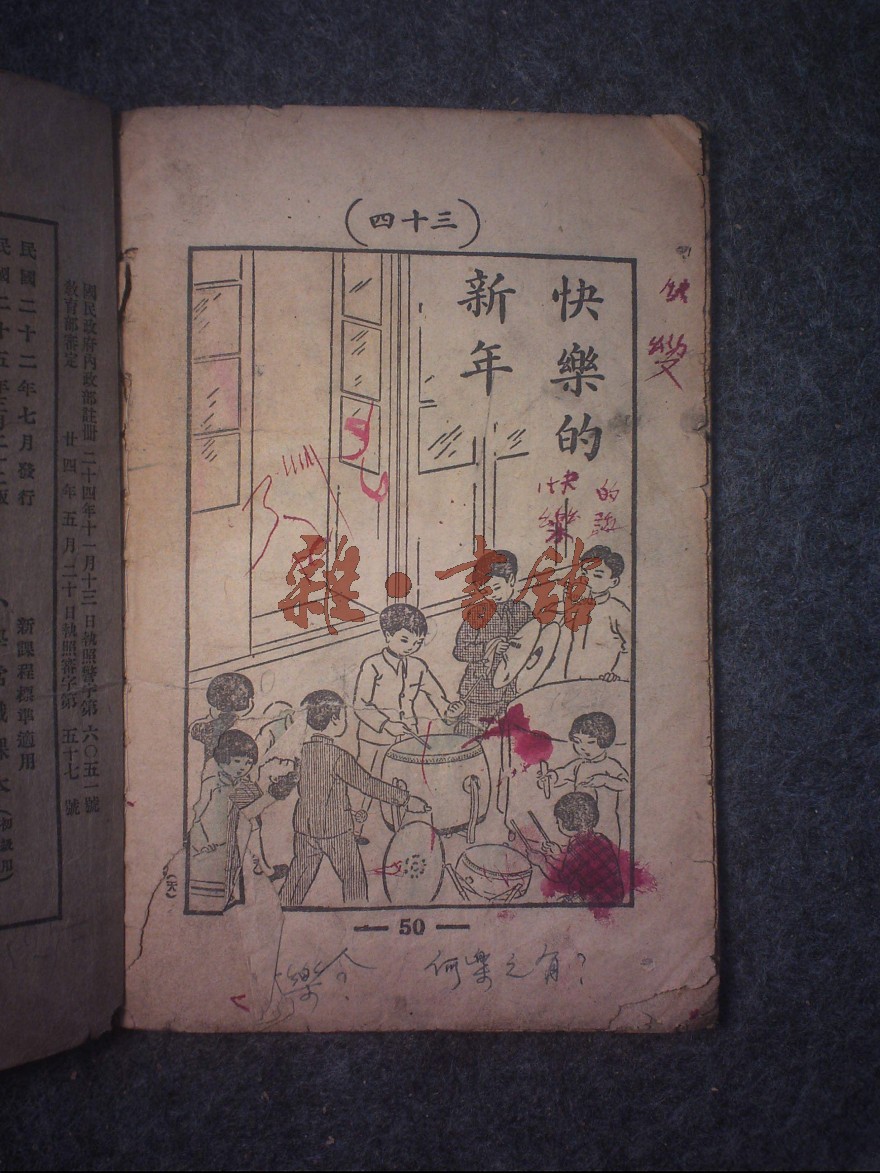 （四十三）
快樂的
新年
快樂
的
雜·書館
— 50 —
樂
何樂之有？
國民政府內政部註冊 二十四年十一月十三日執照警字第六〇五一號
教育部審定 廿四年五月二十日執照審字第五十七號
民國二十二年七月發行
新課程標準適用
常識課本（初級用）